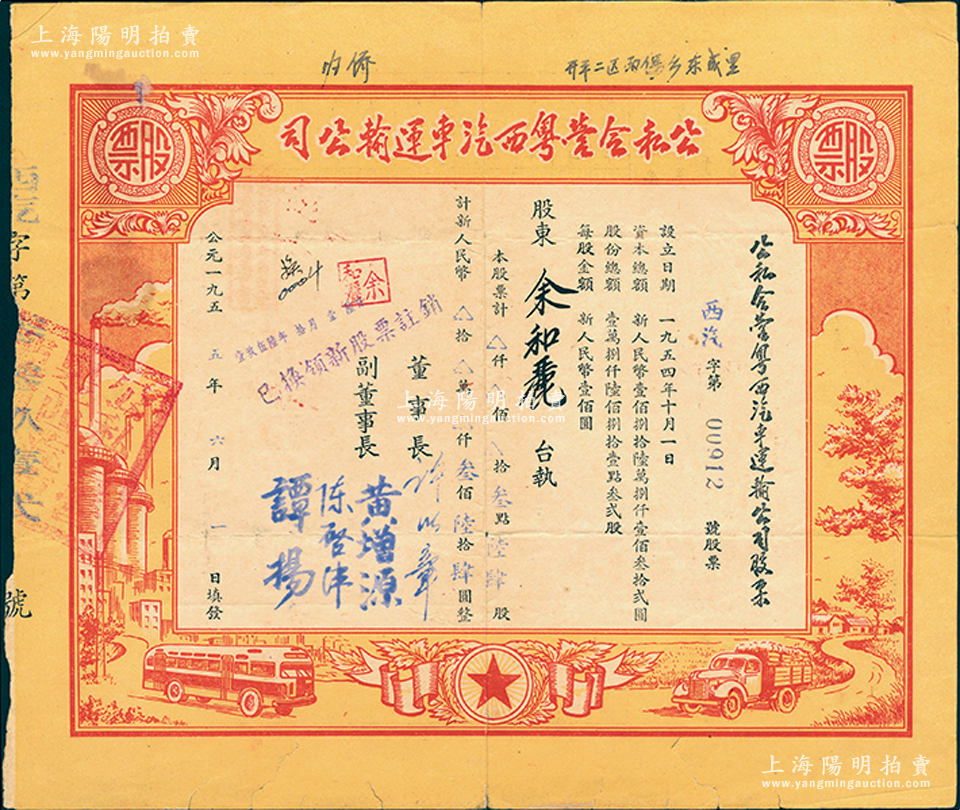 上海陽明拍賣
www.yangmingauction.com
上海陽明拍賣
www.yangmingauction.com
归侨
開平二区西儒乡东成里
公私合营粵西汽車運輸公司
股票
股票
公私合营粵西汽車運輸公司股票
西汽 字第 00912 號股票
設立日期 一九五四年十月一日
資本總額 新人民幣壹佰捌拾陸萬捌仟壹佰叁拾弍圓
股份總額 壹萬捌仟陸佰捌拾壹點叁弍股
每股金額 新人民幣壹佰圓
股東 余和麗 台執
本股票計 仟 佰 拾叁點陸肆股
計新人民幣 拾 萬 仟叁佰陸拾肆圓整
董事長
副董事長
黄增源
陈啓沣
譚揚
公元一九五五年六月一日填發
已換領新股票註銷
余
字第
號
上海陽明拍賣
www.yangmingauction.com
上海陽明拍賣
www.yangmingauction.com